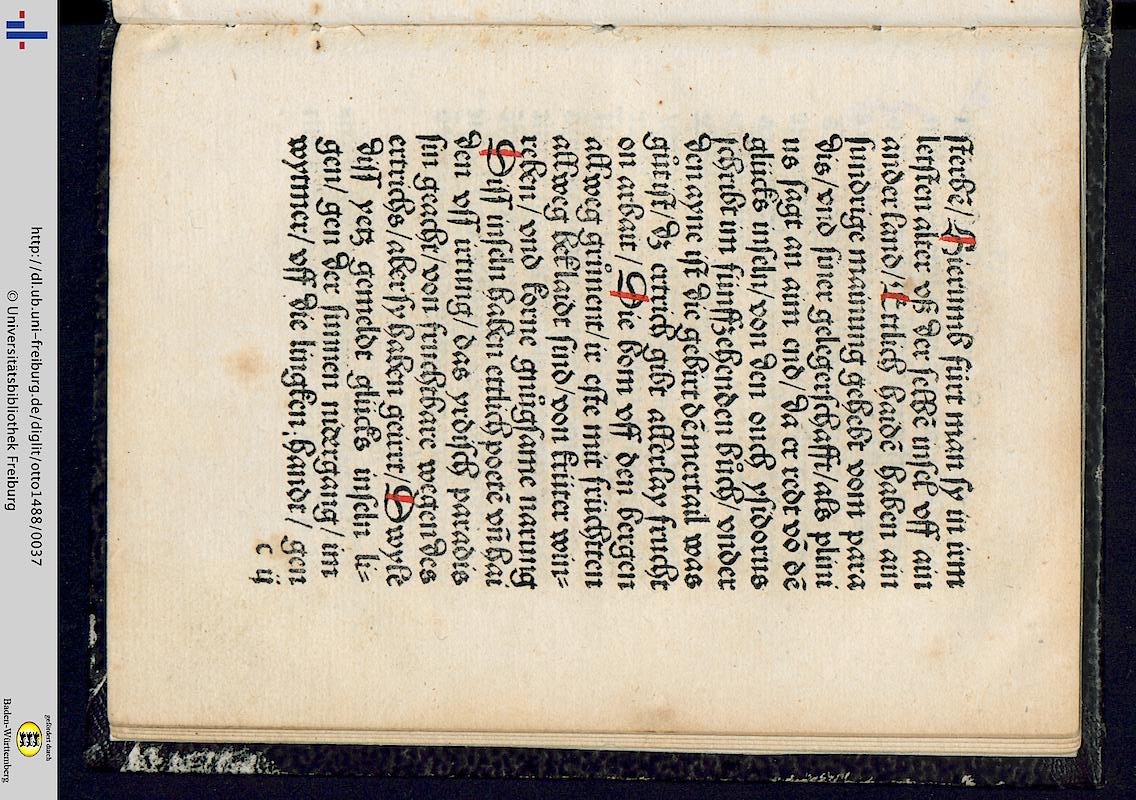 sterbē/ Hierumb fürt man sy in irm
lersten alter vß der selbē insel vff ain
ander land/ Ettlich haidē haben ain
sundrige mainung gehebt vom para
dis/ vnd siner gelegerschafft/ als plini
us sagt an aim end/ da er redt vō dē
glücks inseln/ von den ouch ysidorus
schribt im fünffzehenden bůch/ vnder
den ayne ist die gebirt dēmertail was
gůt ist/ dz ertrich gibt allerlay frucht
on arbait/ Die böm vff den bergen
allweg grůnent/ ir este mit früchten
allweg beklaidt sind/ von krüter win=
reben/ vnd korne gnůgsame narung
Diß inseln haben ettlich poetē vn̄ hai
den vff irrung/ das yrdisch paradis
sin geacht/ von fruchtbare wegen des
ertrichs/ aber sy haben geirrt/ Dwyle
diß yetz gemeldt glücks inseln li=
gen/ gen der sunnen nidergang/ im
wynner/ vff die lingken handt/ gen
c ij
http://dl.ub.uni-freiburg.de/diglit/otto1488/0037
© Universitätsbibliothek Freiburg
gefördert durch
Baden-Württemberg